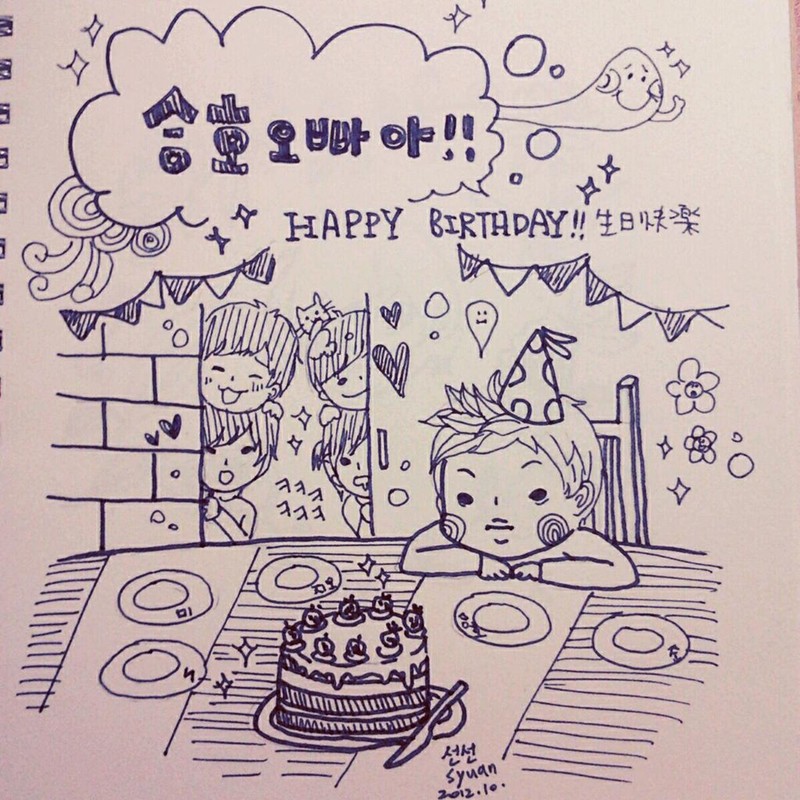 승호 오빠 야!!
HAPPY BIRTHDAY!! 生日快樂
ㅋㅋㅋ
ㅋㅋㅋ
지오
미
선선
syuan
2012.10.